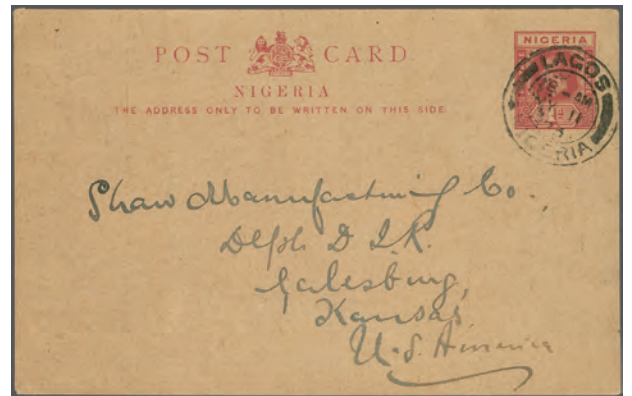 POST CARD
NIGERIA
THE ADDRESS ONLY TO BE WRITTEN ON THIS SIDE.
NIGERIA
LAGOS
AM
NIGERIA
Shaw Manufacturing Co.
Dept D
Galesburg,
Kansas
U.S. America